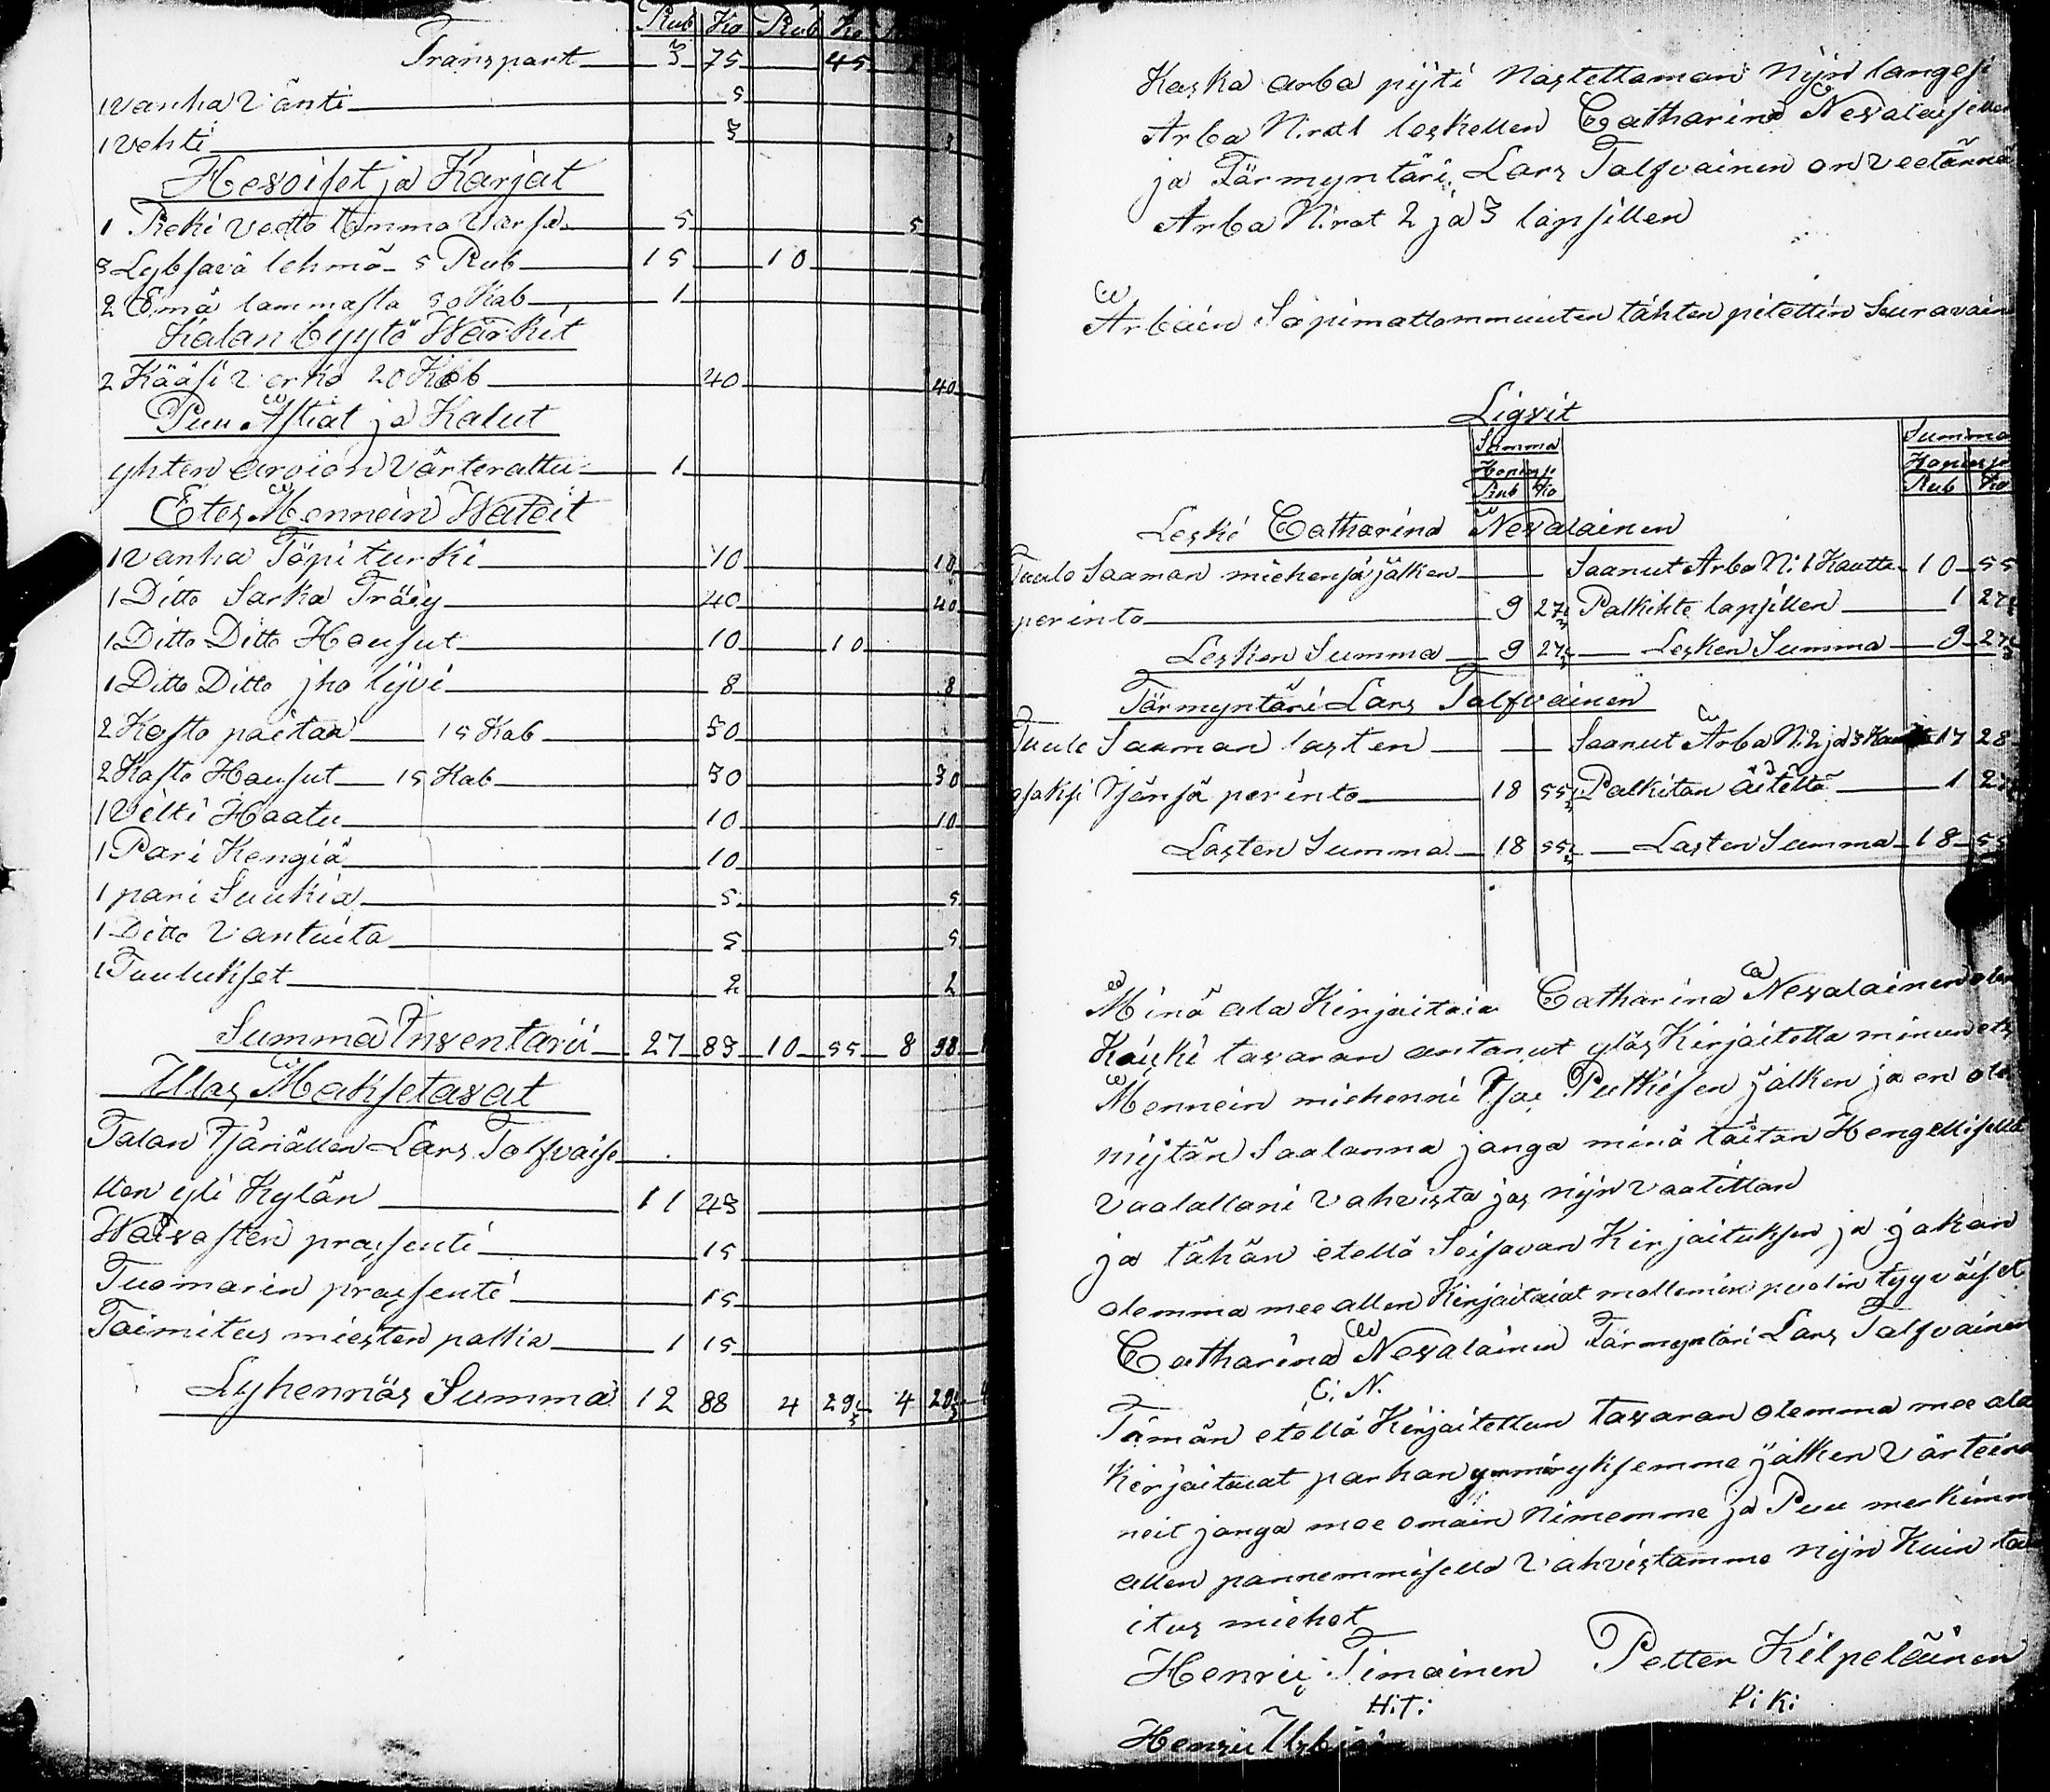 Rub Ko Rub Ko
Transpart 3 75 45
1 vanha Vänti 5
1 vehti 3 3
Hevoiset ja Karjat
1 Reki vedto tamma Varsa 5 5
3 Lybsavä lehmä 5 Rub 15 10
2 Emä lammasta 50 Kob 1
Kalan byytö Wärkit
2 Kääsi verko 20 Kob 40 40
Puu Astiat ja Kalut
yhten arvion värterattu 1
Etes Mennein Wateit
1 vanha Töpi turki 10 10
1 Ditto Sarka Träiy 40 40
1 Ditto Ditto Housut 10 10
1 Ditto Ditto jho lijvi 8 8
2 Kosto paitaa 15 Kob 30
2 Kosto Housut 15 Kob 30 30
1 Vilti Haatu 10 10
1 Pari Kengiä 10
1 pari Suukia 5 5
1 Ditto Vantuita 5 5
1 Tuulukset 2 2
Summa Inventarii 27 83 10 55 8 98
Ulos Maksetavat
Talan Isänällen Lars Talfvaise
llen yli Kylän 11 43
Waivasten pressenti 15
Tuomarin pressenti 15
Toimitus miesten palkia 1 15
Lyhennös Summa 12 88 4 29⅓ 4 29⅓
Koska arba pijti Nostettaman Nijn langesi
Arba N:rot 1 leskellen Catharina Nevalaisellen
ja Färmyntäri Lars Talfvainen on veetännä
Arba N:rot 2 ja 3 lapsillen
Arbain Sopimattommuuten tähten pitettin Seuravain
Ligvit
Summa Summa
Hopiasa Hopiasa
Rub Ko Rub Ko
Leski Catharina Nevalainen
Tuule Saaman miehensä jälken Saanut Arba N:1 Kautta 10 55
perinto 9 27⅔ Palkihte lapsillen 1 27⅓
Lesken Summa 9 27⅔ Lesken Summa 9 27⅔
Färmyntäri Lars Talfvainen
Tuule Saaman lasten Saanut Arba N:2 ja 3 Kautta 17 28
osaksi Isänsä perinto 18 55⅓ Palkitan äitiltä 1 27⅓
Lasten Summa 18 55⅓ Lasten Summa 18 55
Minä ala Kirjoitaia Catharina Nevalainen olen
Kaiki tavaran antanut ylös Kirjoitetta minun etes
Mennein miehenni Isac Putkisen jälken ja en ole
mijtän Saalanna jonga minä taitan Hengellisellä
vaalallani vahvista jos nijn vaatittan
ja tähän etellä Seisovan Kirjoituksen ja jakan
olemma mee allen Kirjoitaiat mollemin puolin tyyväiset
Catharina Nevalainen Färmyntäri Lars Talfvainen
C: N.
Tämän etellä Kirjoitettun tavaran olemma mee ala
Kirjoitavat parhan ymmäryksemme jälken värteina
neit jonga mee omain Nimemme ja Puu merkimme
allen pannemmisella vahvistamme nijn Kuin toi
itus miehet
Henric Timainen Petter Kilpeläinen
H:T: P: K:
Henric